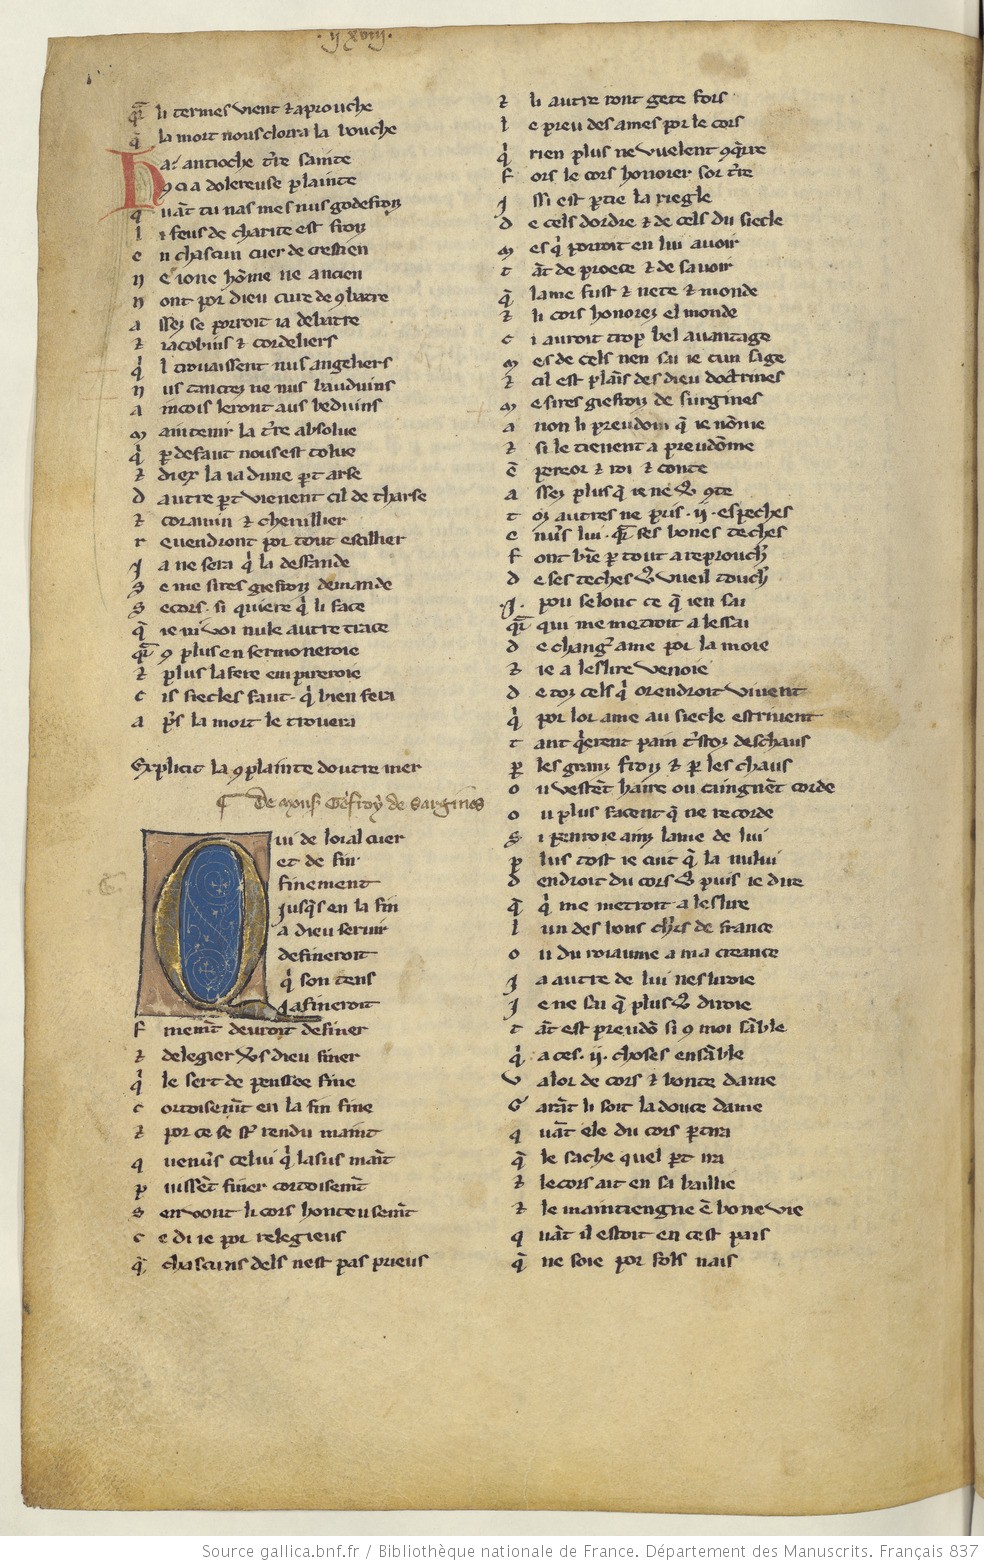 .ij xviij.
Qr̃ li termes vient ⁊ aprouche
q̃ la mort nous clorra la bouche
Ha! antioche t̾re sainte
9 ci a dolereuse plainte
q uãt tu nas mes nus godefroiz
l i feus de charite est froiz
e n chascun cuer de crestien
n e ione hõme ne ancien
n ont por dieu cure de 9batre
a ssez se porroit ia debatre
⁊ iacobins ⁊ cordeliers
qͥl trouaissent nus angeliers
n us tancrez ne nus bauduins
a incois leront aus beduins
m aintenir la t̾re absolue
qͥ p̱ defaut nous est tolue
⁊ diex la ia dune p̱t arse
d autre p̱t vienent cil de tharse
⁊ coramin ⁊ chenillier
r euendront por tout essillier
J a ne sera qͥ la desfande
S e me sires giefroiz demande
S ecors. si quiere qͥ li face
q̃ ie ni voi nule autre trace
qr̃ 9 plus en sermoneroie
⁊ plus lafere empireroie
c is siecles faut. qͥ bien fera
a pͥs la mort le trouera
Explicit la 9plainte doutre mer
¶ De monsr̃ Gefroy de Sargines
Q ui de loial cuer
et de fin
finement
Jusq̃s en la fin
a dieu seruir
defineroit
qͥ son tens
i afineroit
f inemt̃ deuroit definer
⁊ delegier v̾s dieu finer
qͥ le sert de penssee fine
c ortoisemt̃ en la fin fine
⁊ por ce se st̾ rendu maint
q uenũs celui qͥ lasus maĩt
p uissẽt finer cortoisemt̃
s en vont li cors honteusemt̃
c e di ie por relegieus
q̃ chascuns dels nest pas prieus
⁊ li autre ront gete fors
l e preu des ames por le cors
qͥ rien plus ne vuelent 9q̃rre
F ors le cors honorer sor t̾re
J ssi est p̱tie la riegle
d e cels dordre ⁊ de cels du siecle
m es qͥ porroit en lui auoir
t ãt de proece ⁊ de sauoir
q̃ lame fust ⁊ nete ⁊ monde
⁊ li cors honorez el monde
c i auroit trop bel auantage
m es de cels nen sai ie cun sage
⁊ cil est plais des dieu doctrines
m esires giefroiz de surgines
a non li preudom q̃ ie nõme
⁊ si le tienent a preudõme
ẽ pereor ⁊ roi ⁊ conte
a ssez plus q̃ ie ne v̾ 9te
t oz autres ne pris .ij. espeches
e nũs lui. qr̃ ses bones teches
f ont biẽ p̱ tout a reprouch̾
d e ses teches v̾ vueil touch̾
.J. pou selonc ce q̃ ien sai
qr̃ qui me metroit a lessai
d e chang̾ ame por la moie
⁊ ie a leslire venoie
d e toz cels qͥ orendroit viuent
qͥ por lor ame au siecle estriuent
t ant qͥerent pain tͥstoz deschaus
p̱ les granz froiz ⁊ p̱ les chaus
o u vestẽt haire ou caingnẽt corde
o u plus facent q̃ ne recorde
S i penroie ainz lame de lui
p lus tost ie cuit q̃ la nului
d endroit du cors v̾ puis ie dire
q̃ qͥ me metroit a leslire
l un des bons ch̾rs de france
o u du roiaume a ma creance
J a autre de lui neslroie
J e ne sai q̃ plus v̾ diroie
t ãt est preudõ si 9 moi sãble
qͥ a ces .ij. choses ensãble
v alor de cors ⁊ bonte dame
G arãt li soit la douce dame
q uãt ele du cors p̱tira
q̃ le sache quel p̱t ira
⁊ le cors ait en sa baillie
⁊ le maintiengne ẽ bone vie
q uãt il estoit en cest pais
q̃ ne soie por fols nais
Source gallica.bnf.fr / Bibliothèque nationale de France. Département des Manuscrits. Français 837